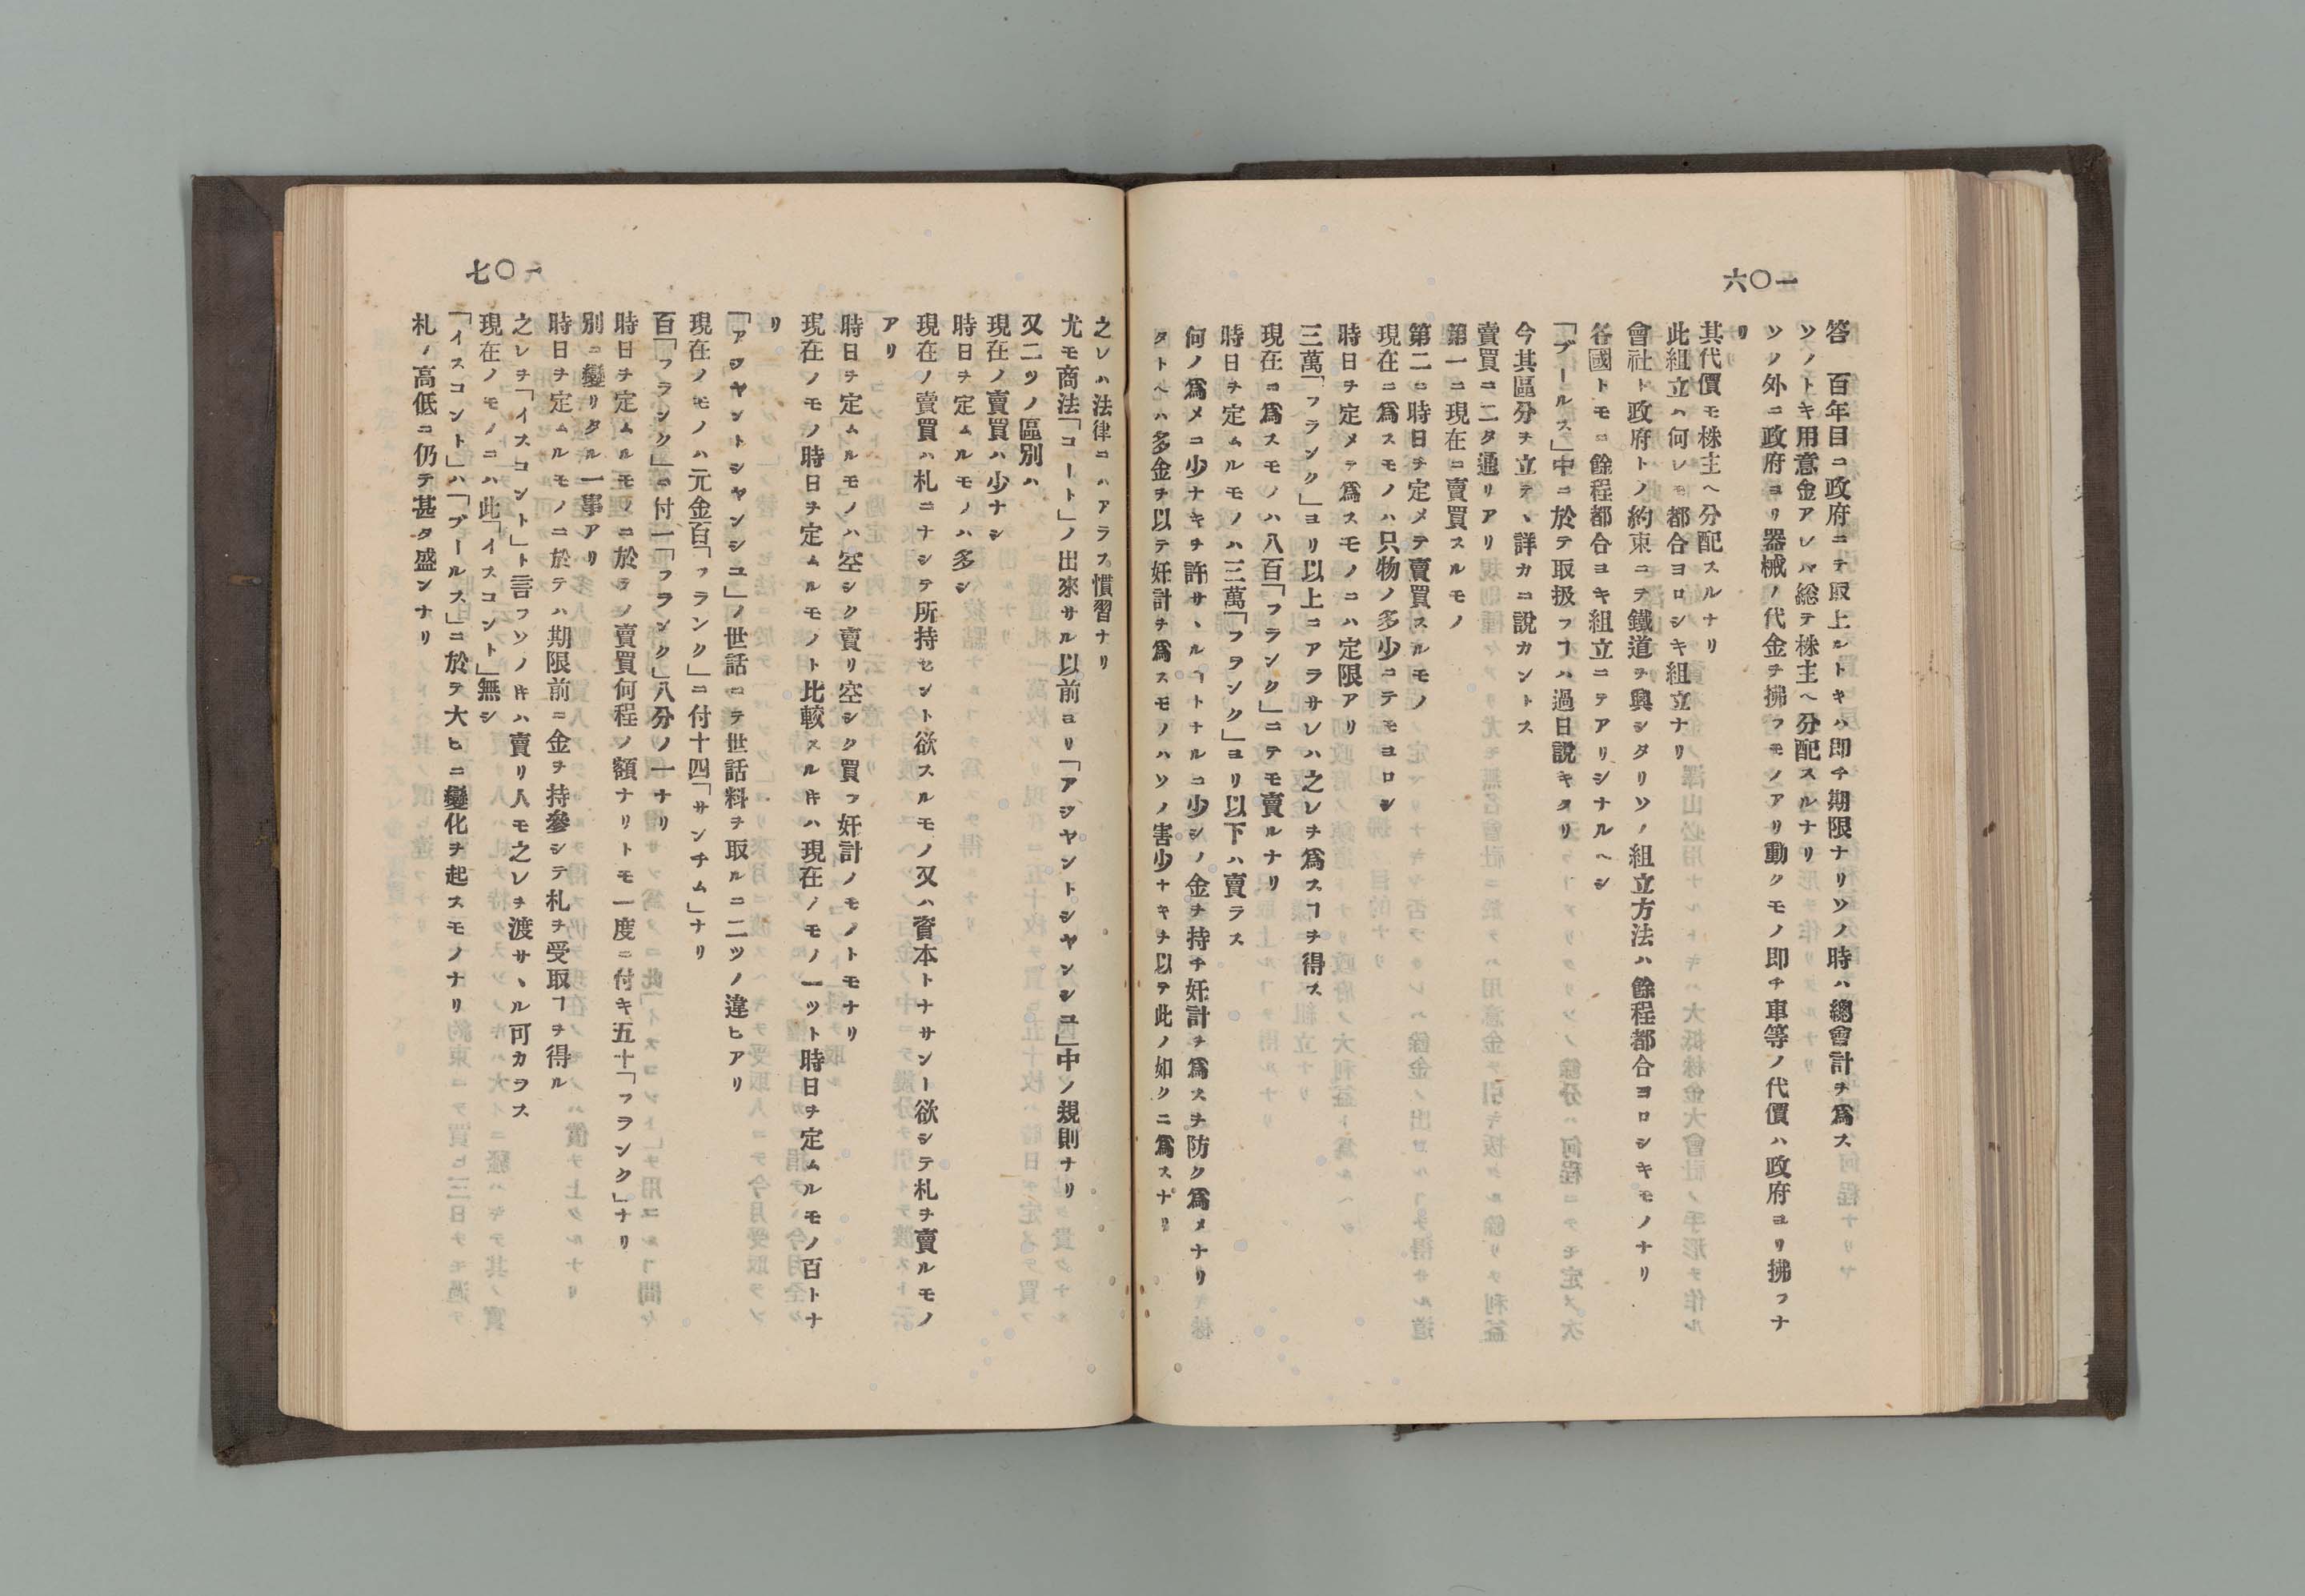 一〇六
答　百年目ニ政府ニテ取上ルトキハ即チ期限ナリソノ時ハ總會計ヲ爲ス
ソノトキ用意金アレハ総テ株主ヘ分配スルナリ
ソノ外ニ政府ヨリ器械ノ代金ヲ拂フモノアリ動クモノ即チ車等ノ代價ハ政府ヨリ拂フナ
リ
其代價モ株主ヘ分配スルナリ
此組立ハ何レモ都合ヨロシキ組立ナリ
會社ト政府トノ約束ニテ鐵道ヲ興シタリソノ組立方法ハ餘程都合ヨロシキモノナリ
各國トモニ餘程都合ヨキ組立ニテアリシナルヘシ
「ブールス」中ニ於テ取扱フヿハ過日説キタリ
今其區分ヲ立テヽ詳カニ說カントス
賣買ニ二タ通リアリ
第一ニ現在ニ賣買スルモノ
第二ニ時日ヲ定メテ賣買スルモノ
現在ニ爲スモノハ只物ノ多少ニテモヨロシ
時日ヲ定メテ爲スモノニハ定限アリ
三萬「フランク」ヨリ以上ニアラサレハ之レヲ爲スヿヲ得ス
現在ニ爲スモノハ八百「フランク」ニテモ賣ルナリ
時日ヲ定ムルモノハ三萬「フランク」ヨリ以下ハ賣ラス
何ノ爲メニ少ナキヲ許サヽルヿトナルニ少シノ金ヲ持チ奸計ヲ爲スヲ防ク爲メナリ
タトヘハ多金ヲ以テ奸計ヲ爲スモノハソノ害少ナキヲ以テ此ノ如クニ爲スナリ
一〇七
之レハ法律ニハアラス慣習ナリ
尤モ商法「コート」ノ出來サル以前ヨリ「アジヤントシヤンシユ」中ノ規則ナリ
又二ツノ區別ハ
現在ノ賣買ハ少ナシ
時日ヲ定ムルモノハ多シ
現在ノ賣買ハ札ニナシテ所持セント欲スルモノ又ハ資本トナサント欲シテ札ヲ賣ルモノ
アリ
時日ヲ定ムルモノハ空シク賣リ空シク買フ奸計ノモノトモナリ
現在ノモノ時日ヲ定ムルモノト比較スルキハ現在ノモノ一ツト時日ヲ定ムルモノ百トナ
リ
「アジヤントシヤンシユ」ノ世話ニテ世話料ヲ取ルニ二ツノ違ヒアリ
現在ノモノハ元金百「フランク」ニ付十四「サンチム」ナリ
百「フランク」ニ付一「フランク」八分ノ一ナリ
時日ヲ定ムルモノニ於テノ賣買何程ノ額ナリトモ一度ニ付キ五十「フランク」ナリ
別ニ變リタル一事アリ
時日ヲ定ムルモノニ於テハ期限前ニ金ヲ持參シテ札ヲ受取ヿヲ得ル
之レヲ「イスコント」ト言フソノキハ賣リ人モ之レヲ渡サヽル可カラス
現在ノモノニハ此「イスコント」無シ
「イスコント」ハ「ブールス」ニ於テ大ヒニ變化ヲ起スモノナリ
札ノ高低ニ仍テ甚タ盛ンナリ